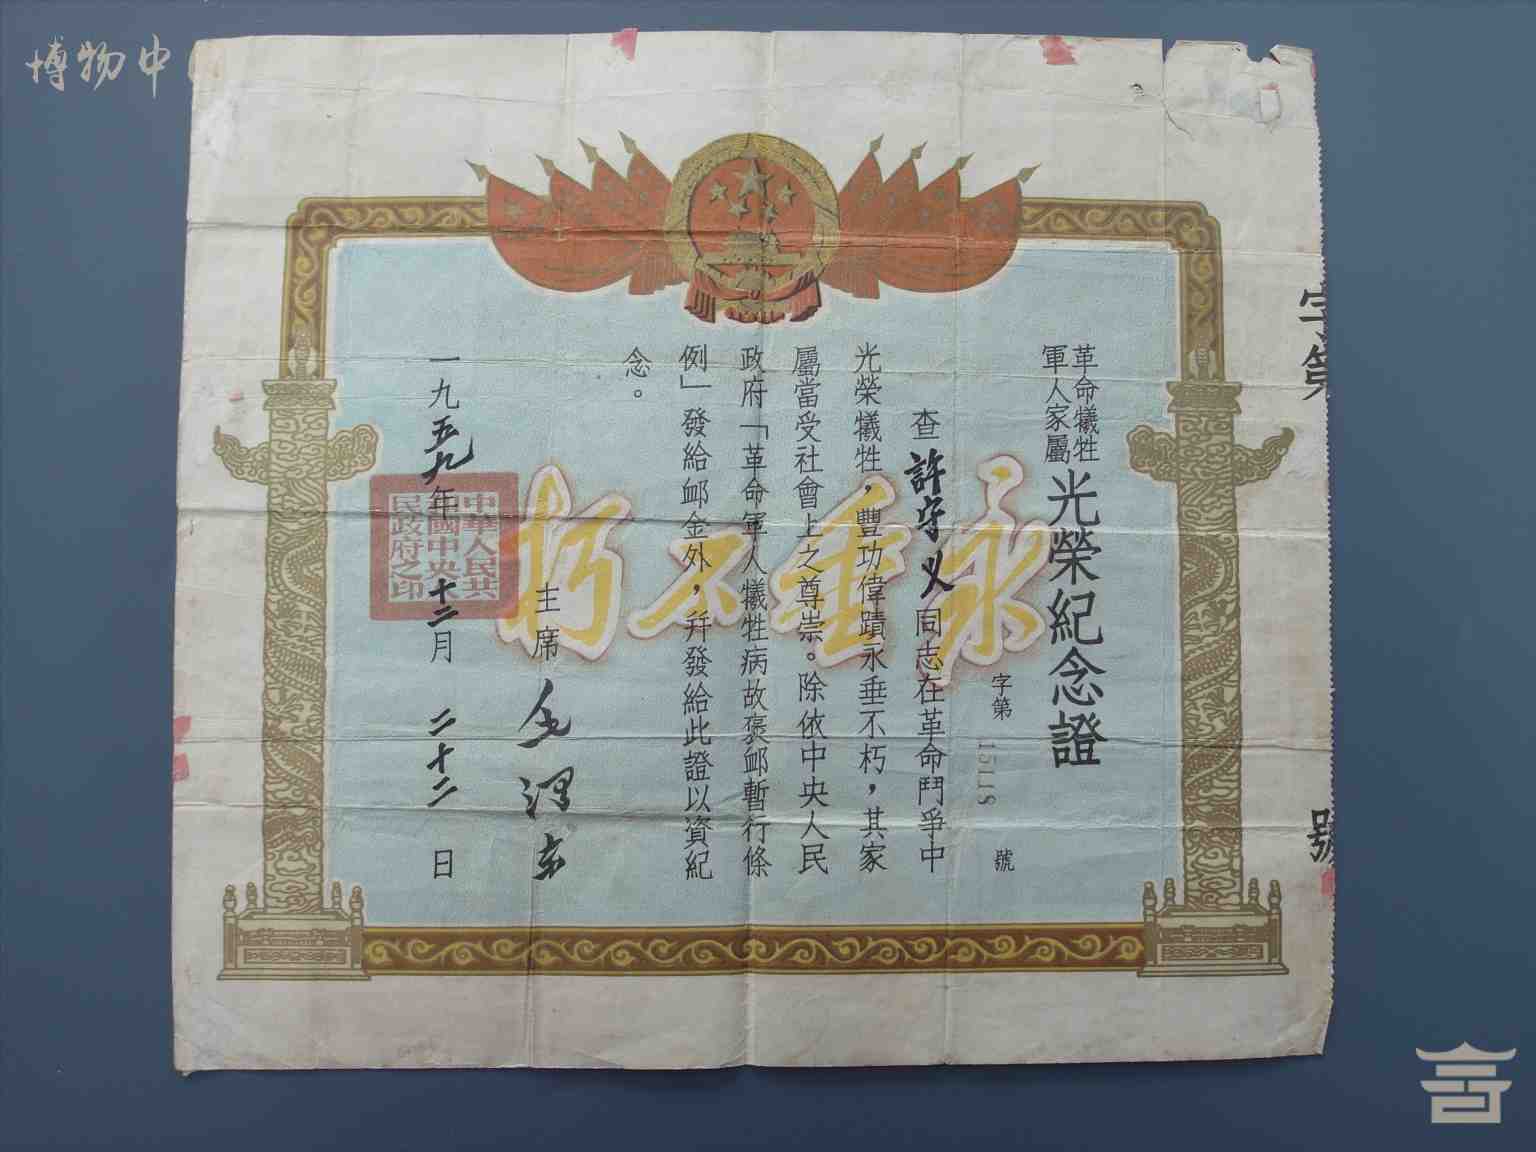 博物中
革命犧牲
軍人家屬
光榮紀念證
字第 15118 號
查許守义同志在革命鬥爭中
光榮犧牲，豐功偉蹟永垂不朽，其家
屬當受社會上之尊崇。除依中央人民
政府「革命軍人犧牲病故褒卹暫行條
例」發給卹金外，幷發給此證以資紀
念。
主席 毛澤东
一九五九年十二月二十二日
中華人民共
和國中央人
民政府之印
永垂不朽
字第
號